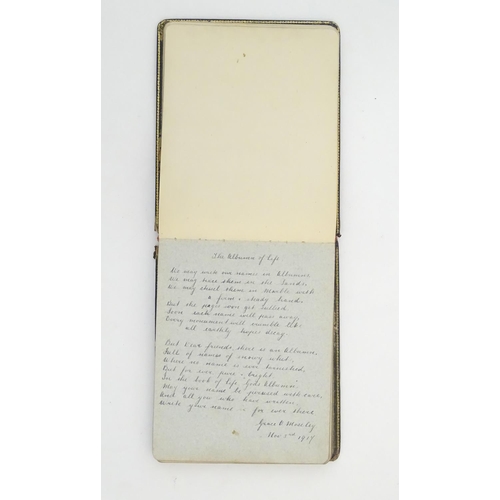 The Album of Life
We may write our names in Albums
We may trace them in the Sands
We may chisel them in Marble with
a firm & steady hand.
But the pages soon get sullied
Soon each name will pass away
Every monument will crumble like
all earthly hopes decay
But Dear friends, there is an Album
Full of names of
Where no name is ever tarnished
But for ever pure & bright
In the book of life, God's Album
May your name be penned with care
And all you who have written
Write your name for ever there
Grace
Nov 1917